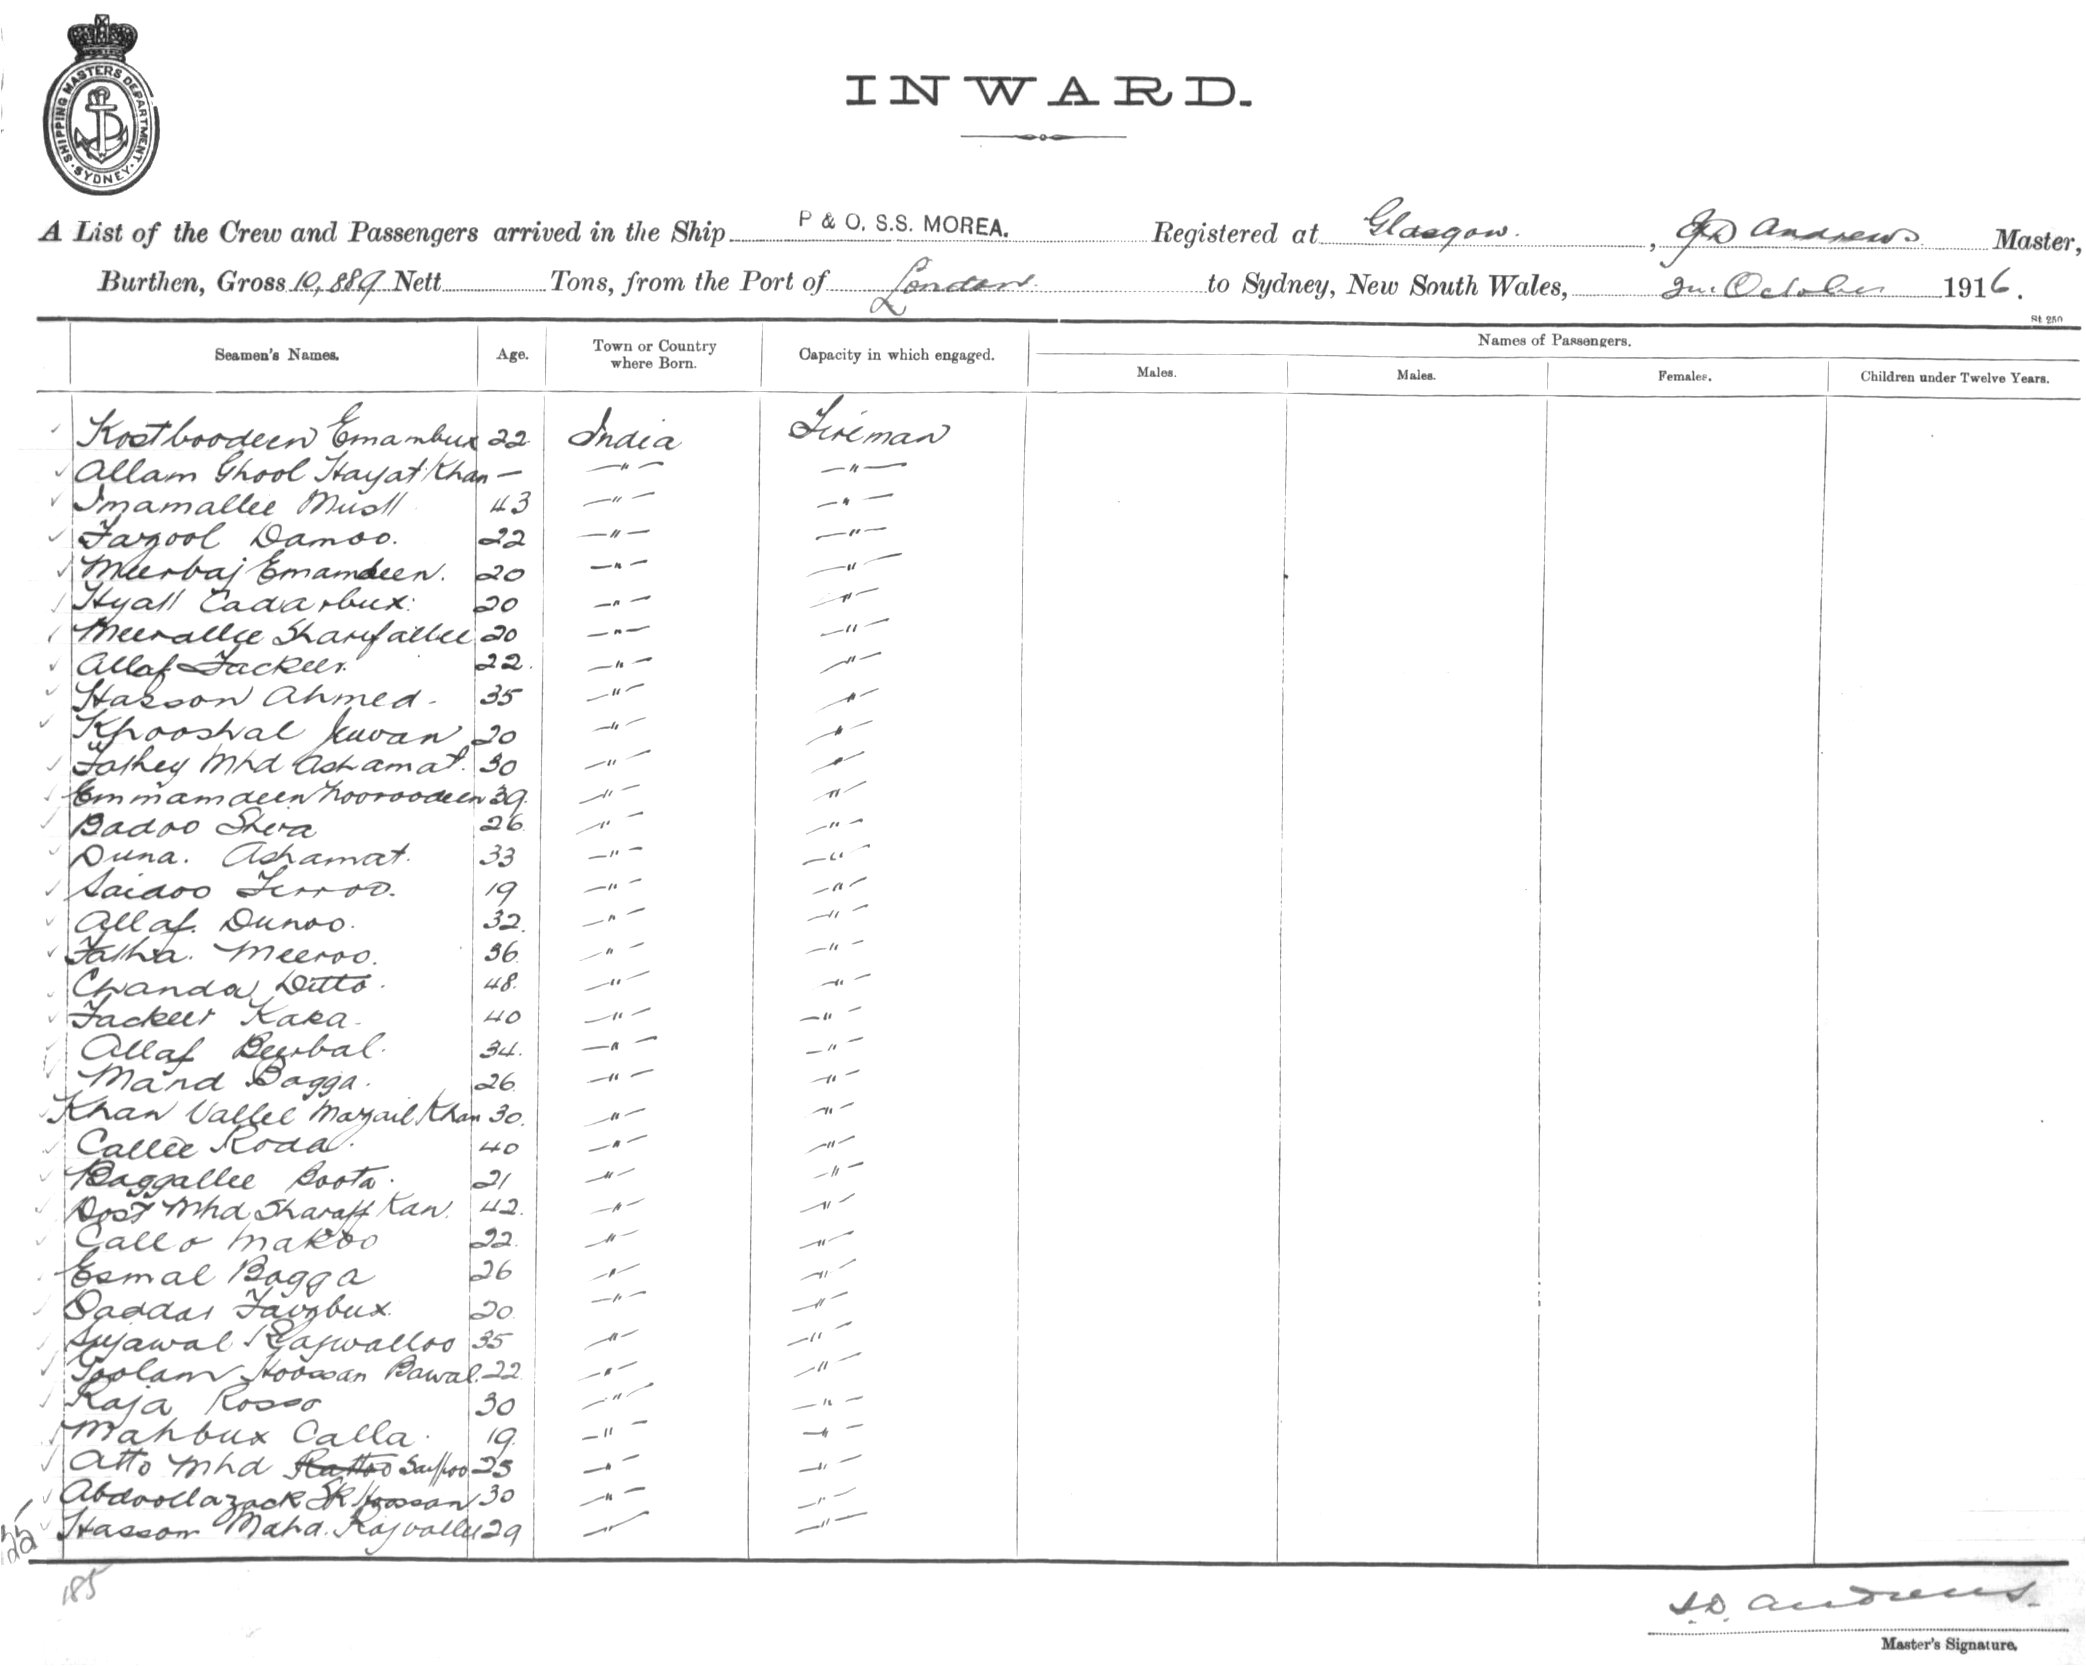 SHIPPING MASTERS DEPARTMENT. SYDNEY
INWARD.
A List of the Crew and Passengers arrived in the Ship P & O. S.S. MOREA. Registered at Glasgow. , J.D Andrews Master,
Burthen, Gross 10,889 Nett Tons, from the Port of London to Sydney, New South Wales, October 1916.
St 250
Seamen's Names. Age. Town or Country where Born. Capacity in which engaged. Names of Passengers.
Males. Males. Females. Children under Twelve Years.
Kostboodeen Emambux 22 India Fireman
Allam Ghool Hayat Khan — " "
Imamallee Musll 43 " "
Fazool Damoo. 22 " "
Meerbaj Emamdeen. 20 " "
Hyall Cadarbux. 20 " "
Meerallee Sharifallee 20 " "
Allaf Fackeer. 22. " "
Hasson Ahmed. 35 " "
Khooshal Jeuvan 20 " "
Fathey Mhd Ashamat. 30 " "
Emmamdeen Nooroodeen 39. " "
Badoo Shera 26 " "
Duna. Ashamat. 33 " "
Saidoo Ferroo. 19 " "
Allaf. Dunoo. 32. " "
Fatha. Meeroo. 36 " "
Chanda Ditto. 48. " "
Fackeer Kaka. 40 " "
Allaf Beerbal. 34. " "
Mand Bagga. 26 " "
Khan Vallee Mazail Khan 30. " "
Callee Roda. 40 " "
Baggallee Boota. 21 " "
Dost Mhd Sharaff Kan. 42. " "
Callo Makoo 22. " "
Esmal Bagga 26 " "
Daddar Favzbux. 20 " "
Sujawal Rajwalloo 35 " "
Goolam Hoossan Bawal. 22 " "
Raja Rosso 30 " "
Mahbux Calla. 19. " "
Atto Mhd Rattoo Saffoo 25 " "
Abdoollazack SK Hoossan 30 " "
Hassom Mahd. Rajvallee 29 " "
35
185
J.D. Andrews.
Master's Signature.